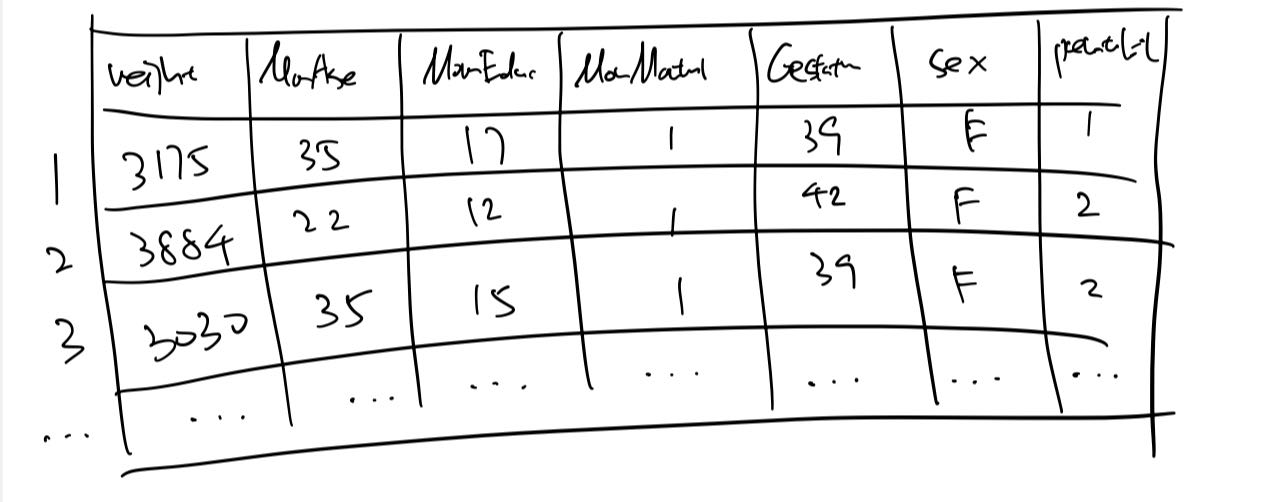 weight MomAge MomEduc MomMarital Gestation sex
1 3175 35 17 1 39 F 1
2 3884 22 12 1 42 F 2
3 3030 35 15 1 39 F 2
... ... ... ... ... ... ... ...